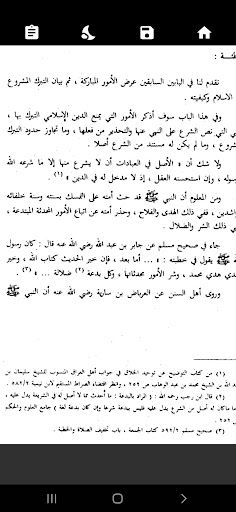 تقدم لنا في البابين السابقين عرض الأمور المباركة ، ثم بيان التبرك المشروع
الاسلام وكيفيته .
وفي هذا الباب سوف أذكر الأمور التي يمنع الدين الإسلامي التبرك بها ،
ي التي نص الشرع على النهي عنها والتحذير من فعلها ، وما تجاوز حدود التبرك
شروع ، وما لم يكن له مستند من الشرع أصلا .
ولا شك أن « الأصل في العبادات أن لا يشرع منها إلا ما شرعه الله
رسوله ، وإن استحسنه العقل ، إذ لا مدخل له في الدين » (١) .
ومن المعلوم أن النبي ﷺ قد حث أمته على التمسك بسنته وسنة خلفائه
راشدين ، ففي ذلك الهدى والفلاح ، وحذر أمته عن اتباع الأمور المحدثة المبتدعة ،
ي ذلك الشر والضلال .
جاء في صحيح مسلم عن جابر بن عبد الله رضي الله عنه قال : كان رسول
ﷺ يقول في خطبته : « ... أما بعد ، فإن خير الحديث كتاب الله ، وخير
دي هدي محمد ، وشر الأمور محدثاتها ، وكل بدعة (٢) ضلالة ... » (٣) .
وروى أهل السنن عن العرباض بن سارية رضي الله عنه أن النبي ﷺ
(١) من كتاب التوضيح عن توحيد الخلاق في جواب أهل العراق المنسوب للشيخ سليمان بن
د الله بن الشيخ محمد بن عبد الوهاب ص ٢٥٢ . وانظر اقتضاء الصراط المستقيم لابن تيمية ٥٨٢/٢ .
(٢) قال ابن رجب رحمه الله : ( المراد بالبدعة : ما أحدث مما لا أصل له في الشريعة يدل عليه ،
ما ماكان له أصل من الشرع يدل عليه فليس ببدعة شرعا وإن كان بدعة لغة ) جامع العلوم والحكم
ص ٢٥٢ .
(٣) صحيح مسلم ٥٩٢/٢ كتاب الجمعة ، باب تخفيف الصلاة والخطبة .